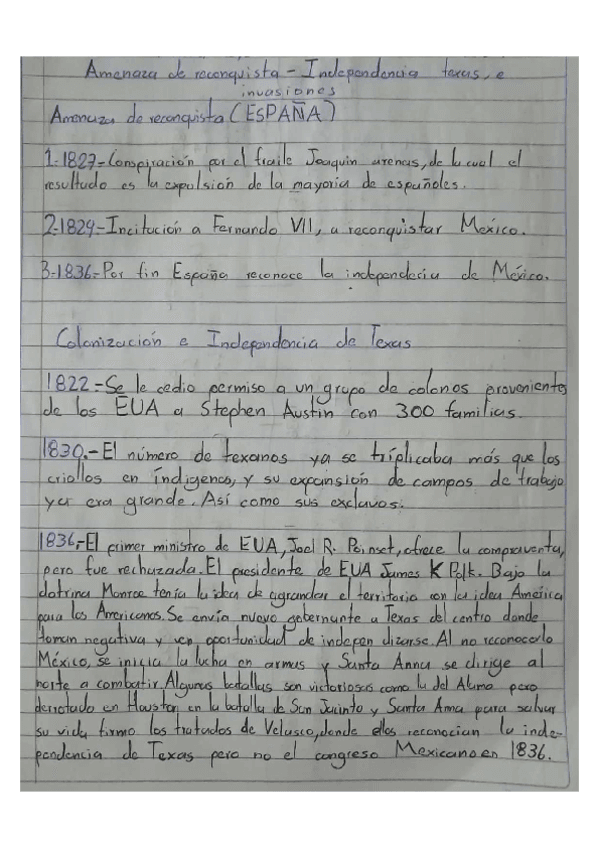 Amenaza de reconquista - Independencia texas, e
invasiones
Amenaza de reconquista (ESPAÑA)
1.-1827-Conspiración por el fraile Joaquin arenas, de la cual el
resultado es la expulsión de la mayoria de españoles.
2.-1829-Incitución a Fernando VII, a reconquistar México.
3-1836-Por fin España reconoce la independecia de México.
Colonización e Independencia de Texas
1822.-Se le cedio permiso a un grupo de colonos provenientes
de los EUA a Stephen Austin con 300 familias.
1830.-El número de texanos ya se triplicaba más que los
criollos en indigenas, y su expansión de campos de trabajo
ya era grande. Así como sus exclavos.
1836.-El primer ministro de EUA, Joel R. Poinset, ofrece la compraventa,
pero fue rechazada. El presidente de EUA James K Polk. Bajo la
dotrina Monroe tenía la idea de agrandar el territorio con la idea América
para los Americanos. Se envía nuevo gobernante a Texas del centro donde
toman negativa y ven oportunidad de indepen dizarse. Al no reconocerlo
México, se inicia la lucha en armas y Santa Anna se dirige al
norte a combatir. Algunas batallas son victoriosas como la del Alamo pero
derrotado en Houston en la batalla de San Juinto y Santa Anna para salvar
su vida firmo los tratados de Velasco, donde ellos reconocian la inde-
pendencia de Texas pero no el congreso Mexicano en 1836.